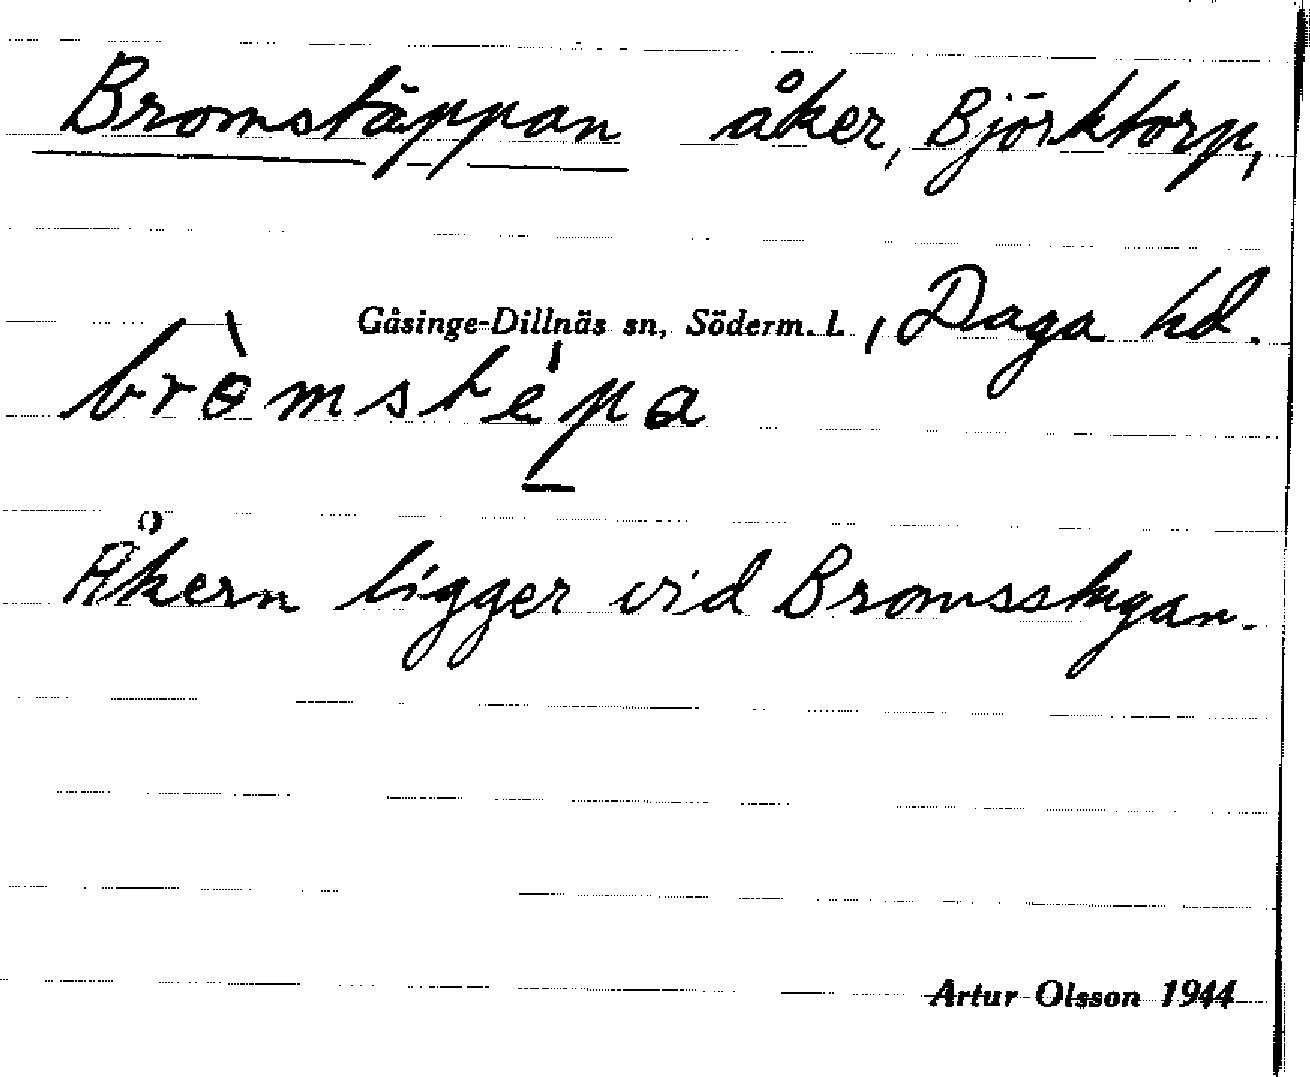 Bromstäppan åker, Björktorp,
Gåsinge-Dillnäs sn, Söderm. l. , Daga hd.
bròmstépa
Åkern ligger vid Bromsstugan.
Artur Olsson 1944